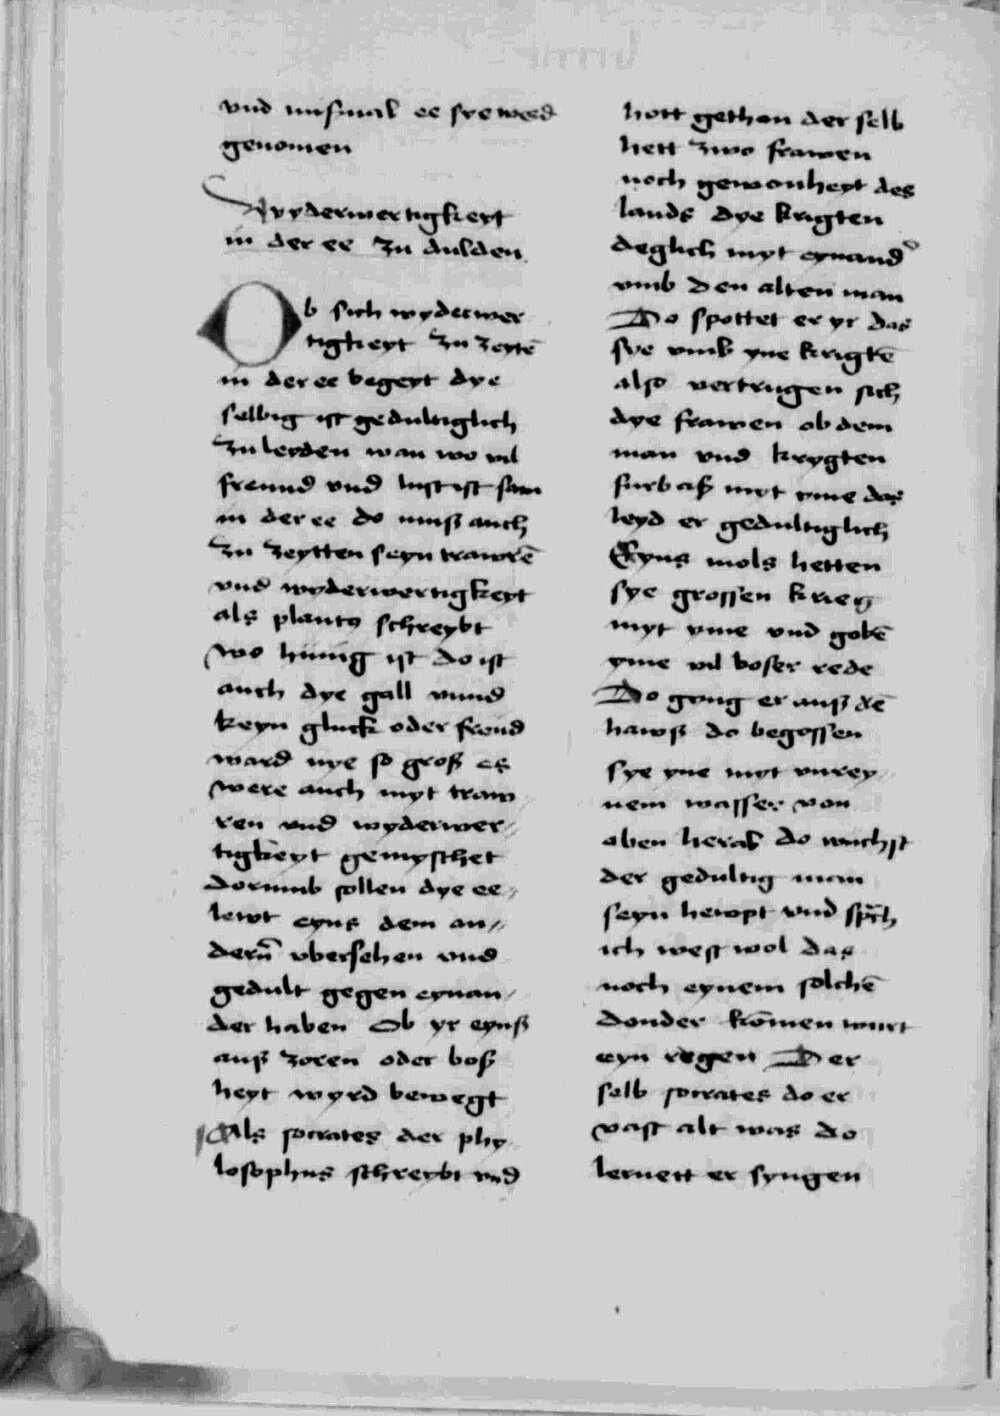 vnd nüsmal ee sye werd
genomen
Wyderwertigkeyt
in der ee zu dulden
Ob sich wyderwer
tigkeyt zu zeytē
in der ee begeyt dye
selbig ist gedultiglich
zu leyden wan wo vil
freund vnd lust ist sam
in der ee do muß auch
zu zeytten seyn trawrē
vnd wyderwertigkeyt
als plautꝰ schreybt
wo hünig ist do ist
auch dye gall vnnd
keyn gluck oder freud
ward nye so groß es
were auch myt traw
ren vnd wyderwer〃
tigkeyt gemyschet
dorumb sollen dye ee〃
lewt eyns dem an〃
dern̄ vbersehen vnd
gedult gegen eynan〃
der haben Ob yr eynß
auß zoren oder boß
heyt wyrd bewegt
Als socrates der phy
losophus schreybt vnd
hott gethan der selb
hett zwo frawen
noch gewonheyt des
lands dye krigten
deglich myt eynandˀ
vmb den alten man
Do spottet er yr das
sye vmb yne krigtē
also vertrugen sich
dye frawen ob dem
man vnd krygten
furbaß myt yme das
leyd er gedultiglich
Eyns mols hetten
sye grossen krieg
myt yme vnd gobē
yme vil boser rede
Do gyng er auß dē
hawß do begossen
sye yne myt vnrey〃
nem wasser von
oben herab do wuchst
der gedultig man
seyn hewpt vnd spr̄ch
ich west wol das
noch eynem solchē
donder kōmen wurt
eyn regen Der
selb socrates do er
vast alt was do
lernett er syngen